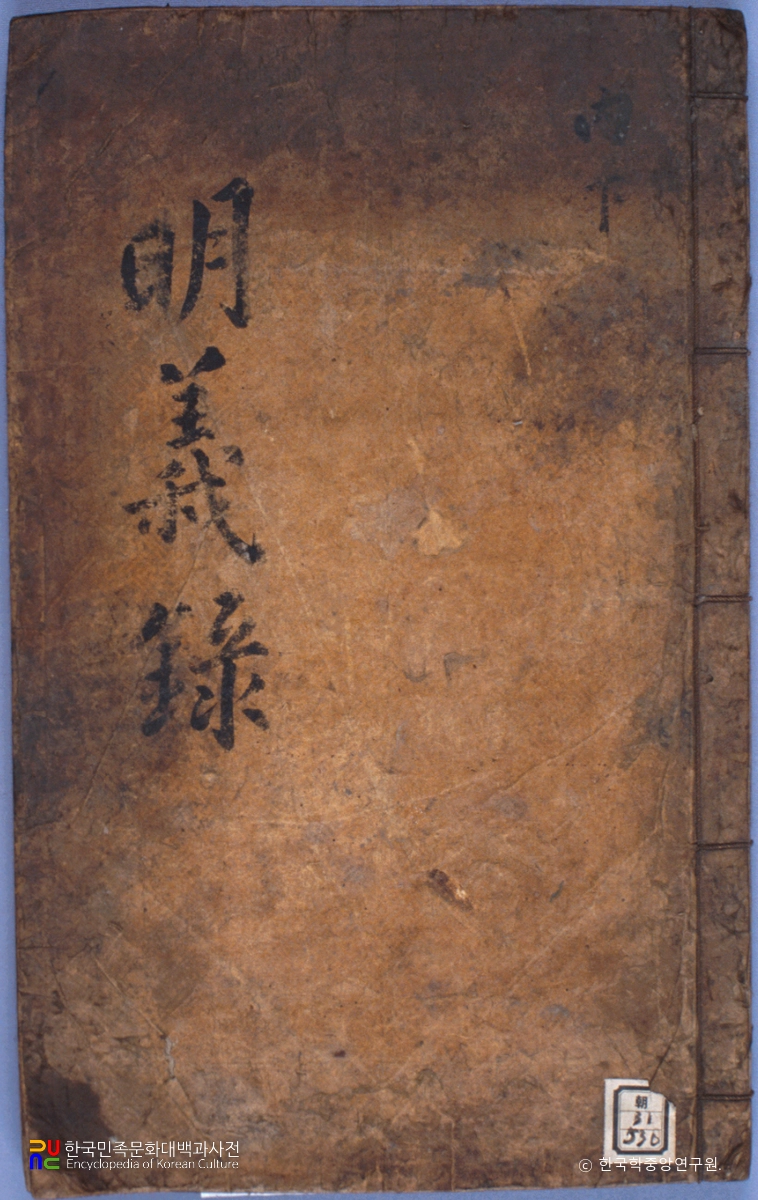 明義錄
朝
31
536
한국민족문화대백과사전
Encyclopedia of Korean Culture
© 한국학중앙연구원.